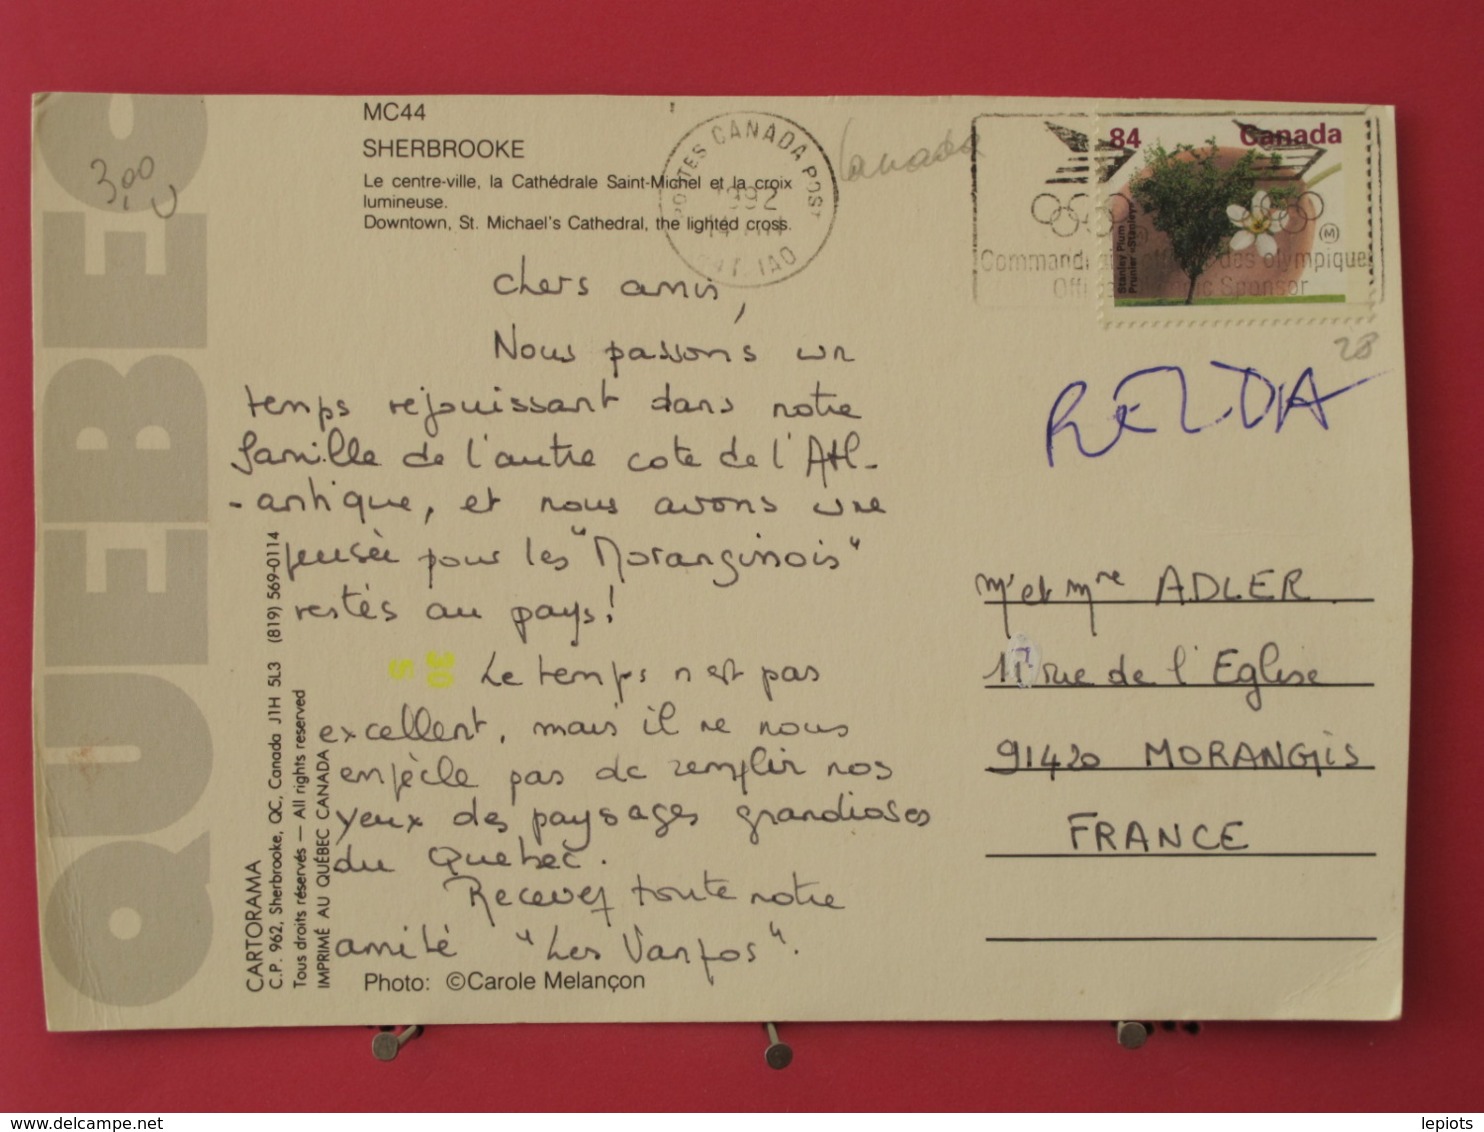 MC44
SHERBROOKE
Le centre-ville, la Cathédrale Saint-Michel et la croix
lumineuse.
Downtown, St. Michael's Cathedral, the lighted cross.
QUEBEC
3,00
POSTES CANADA POST
1992
14
Canada
84
Canada
Stanley Plum
Prunier «Stanley»
olympique
Sponsor
28
chers amis,
Nous passons un
temps rejouissant dans notre
famille de l'autre cote de l'Atl-
-antique, et nous avons une
pensée pour les "Moranginois"
restés au pays!
30
5
Le temps n'est pas
excellent, mais il ne nous
empècle pas de remplir nos
yeux des paysages grandioses
du Quebec.
Recevez toute notre
amitié "Les Vanfos".
Photo: ©Carole Melançon
CARTORAMA
C.P. 962, Sherbrooke, QC, Canada J1H 5L3 (819) 569-0114
Tous droits réservés — All rights reserved
IMPRIMÉ AU QUÉBEC CANADA
Mr et Mme ADLER
rue de l'Eglise
91420 MORANGIS
FRANCE
delcampe.net
lepiots